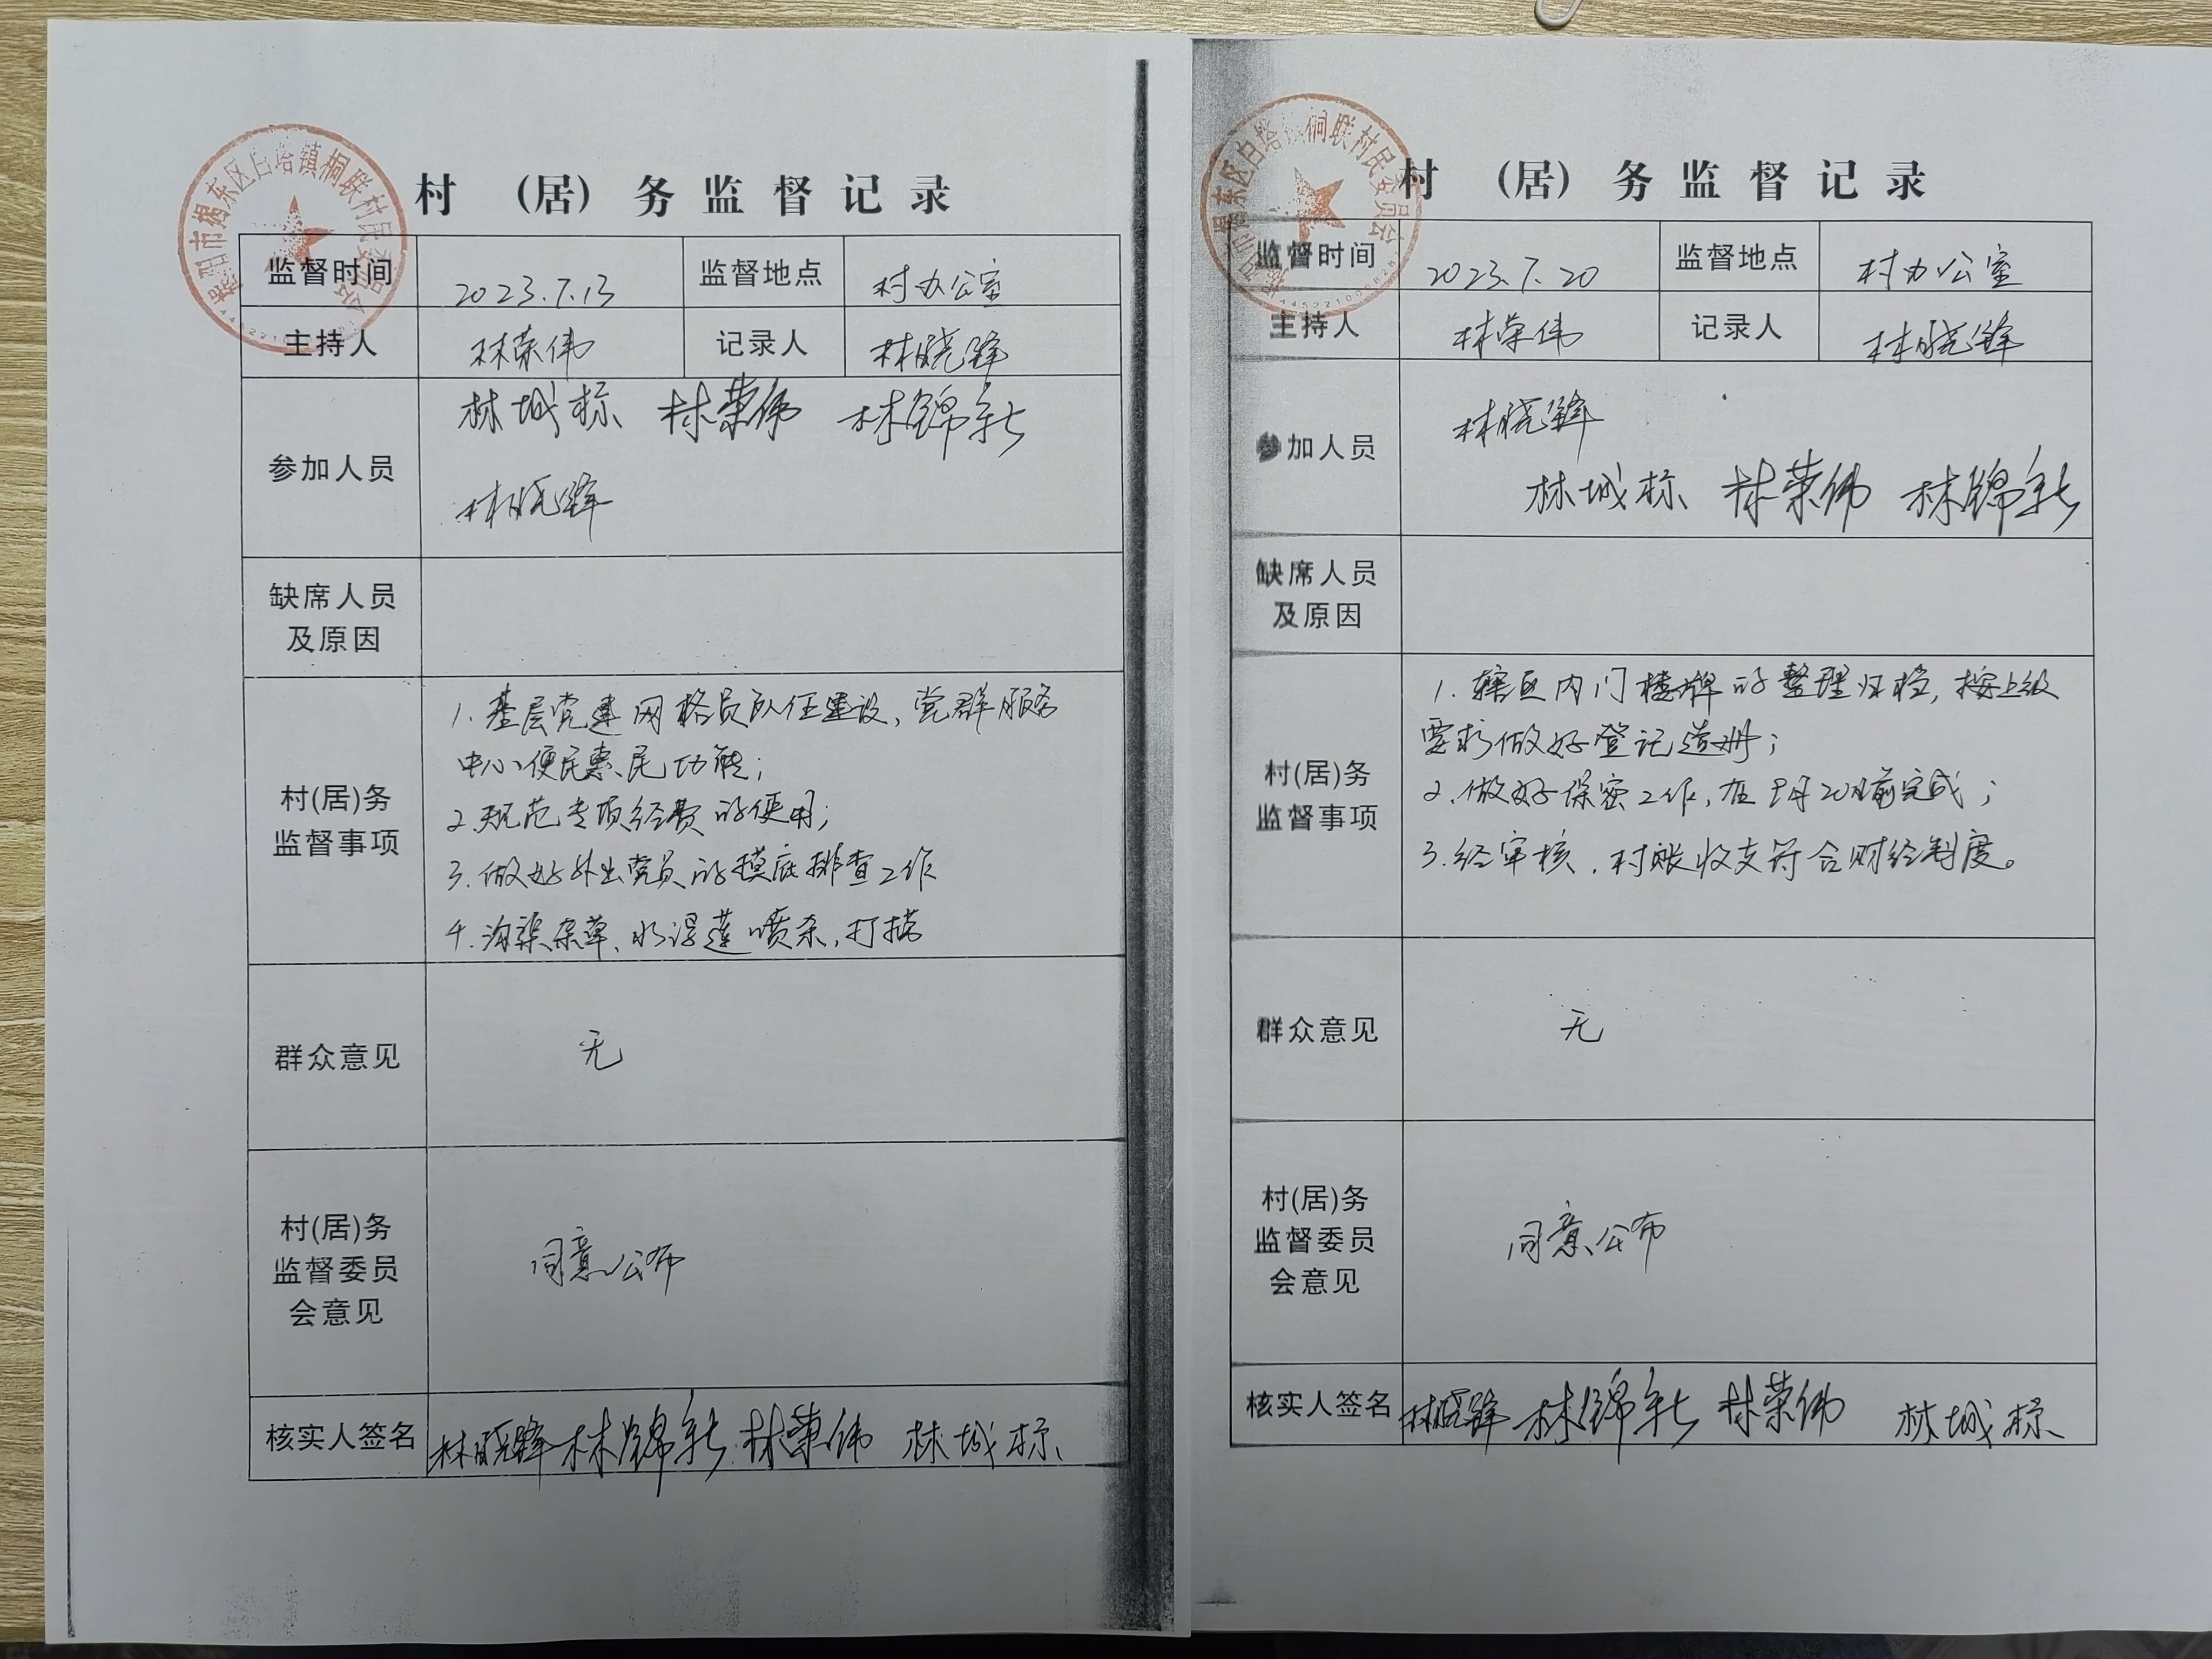 揭阳市揭东区白塔镇桐联村民委员会
村 (居) 务监督记录
监督时间 2023.7.13 监督地点 村办公室
主持人 林荣伟 记录人 林晓锋
参加人员 林城标 林荣伟 林锦新
林晓锋
缺席人员
及原因
村(居)务
监督事项
1.基层党建网格员队伍建设、党群服务
中心便民惠民功能;
2.规范专项经费的使用;
3.做好外出党员的摸底排查工作
4.沟渠杂草、水浮莲喷杀,打捞
群众意见 无
村(居)务
监督委员
会意见
同意公布
核实人签名 林晓锋 林锦新 林荣伟 林城标
揭阳市揭东区白塔镇桐联村民委员会
村 (居) 务监督记录
监督时间 2023.7.20 监督地点 村办公室
主持人 林荣伟 记录人 林晓锋
参加人员 林晓锋
林城标 林荣伟 林锦新
缺席人员
及原因
村(居)务
监督事项
1.辖区内门楼牌的整理归档,按上级
要求做好登记造册;
2.做好保密工作,在 月20日前完成;
3.经审核,村账收支符合财经制度。
群众意见 无
村(居)务
监督委员
会意见
同意公布
核实人签名 林晓锋 林锦新 林荣伟 林城标